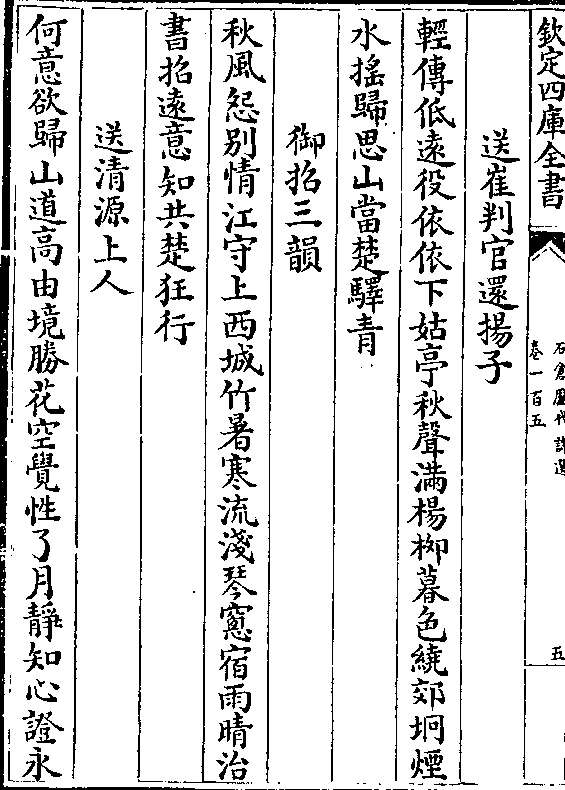 欽定四庫全書
石倉歷代詩選
卷一百五
五
送崔判官還揚子
輕傳低遠役依依下姑亭秋聲滿楊栁暮色繞郊坰煙
水揺歸思山當楚驛青
御招三韻
秋風怨别情江守上西城竹暑寒流淺琴窻宿雨晴治
書招遠意知共楚狂行
送清源上人
何意欲歸山道高由境勝花空覺性了月靜知心證永